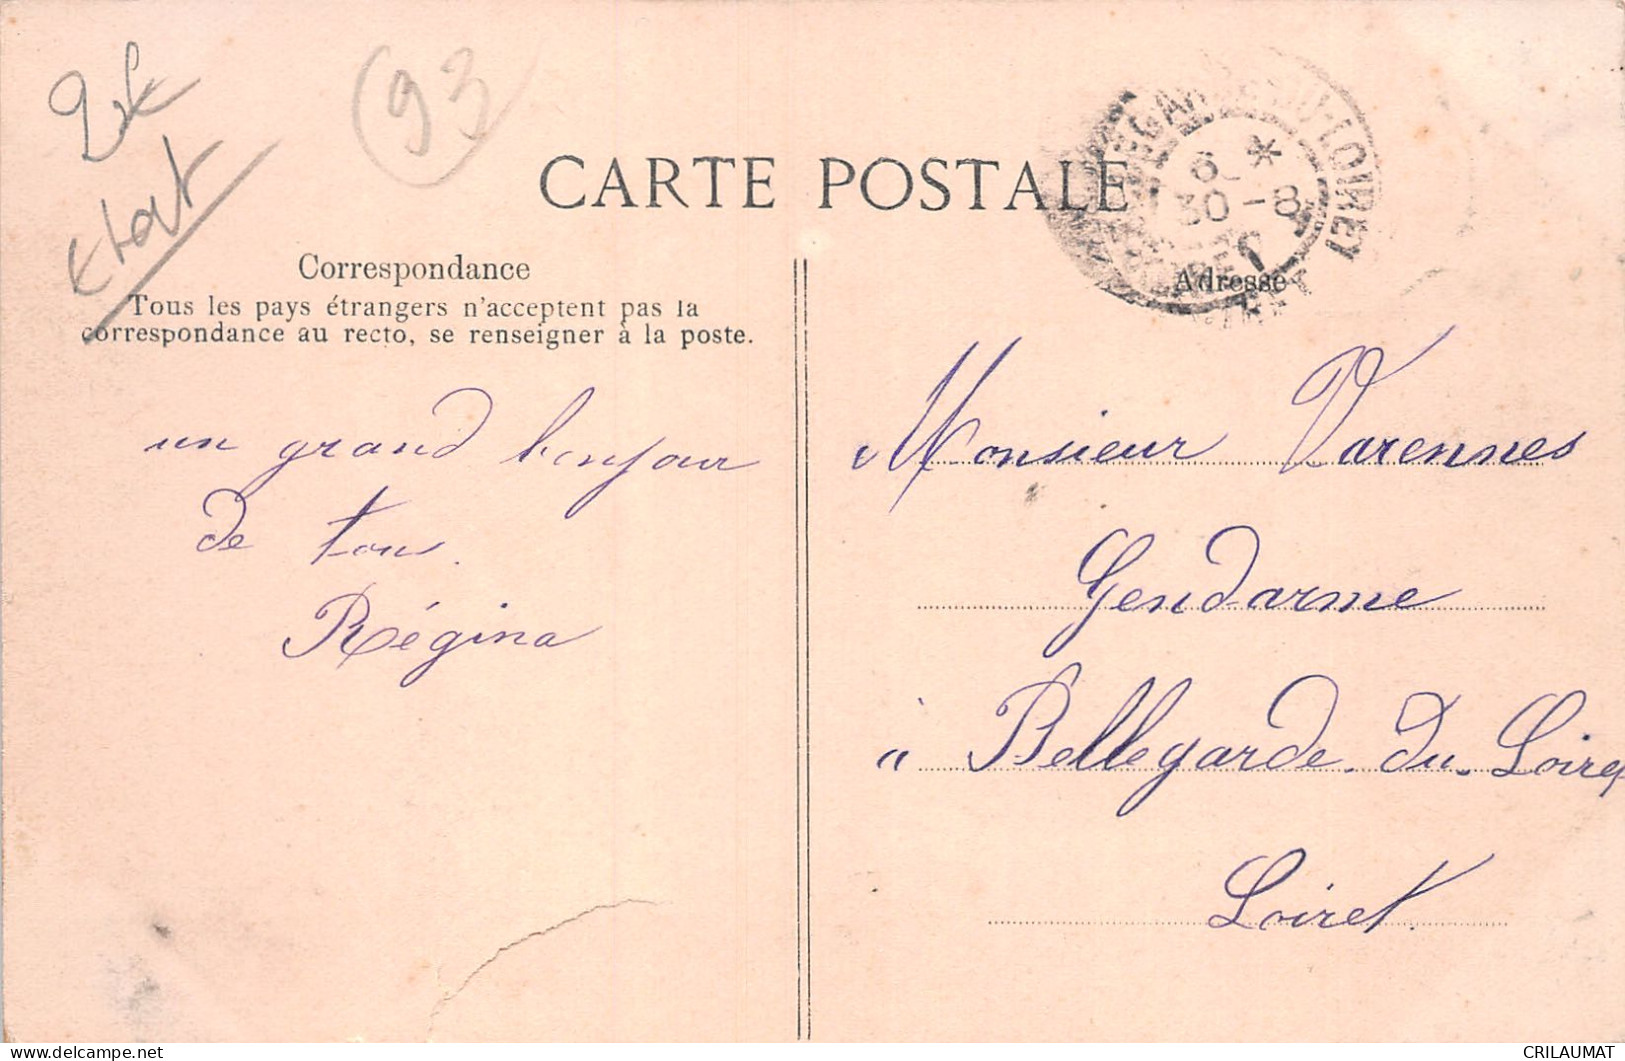 93
Etat
CARTE POSTALE
DU-LOIRET
6 *
30-8
Correspondance
Tous les pays étrangers n'acceptent pas la
correspondance au recto, se renseigner à la poste.
Adresse
un grand bonjour
de tous.
Régina
Monsieur Varennes
Gendarme
à Bellegarde-du-Loiret
Loiret.
CRILAUMAT